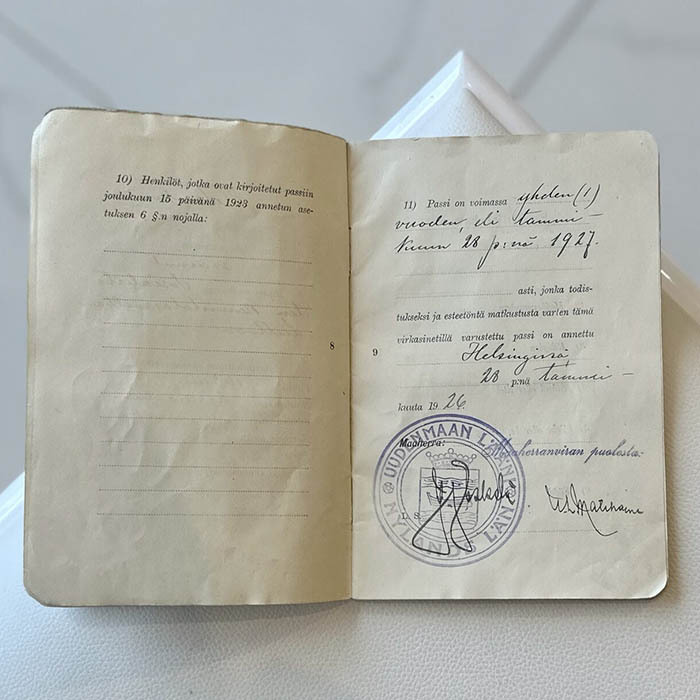 10) Henkilöt, jotka ovat kirjoitetut passiin
joulukuun 15 päivänä 1923 annetun ase-
tuksen 6 §:n nojalla:
8
9
11) Passi on voimassa yhden (1)
vuoden, eli tammi-
kuun 28 p:nä 1927.
asti, jonka todis-
tukseksi ja esteetöntä matkustusta varten tämä
virkasinetillä varustettu passi on annettu
Helsingissä,
28 p:nä tammi-
kuuta 1926.
Maaherra:
Maaherranviran puolesta:
UUDENMAAN LÄÄNI
NYLANDS LÄN